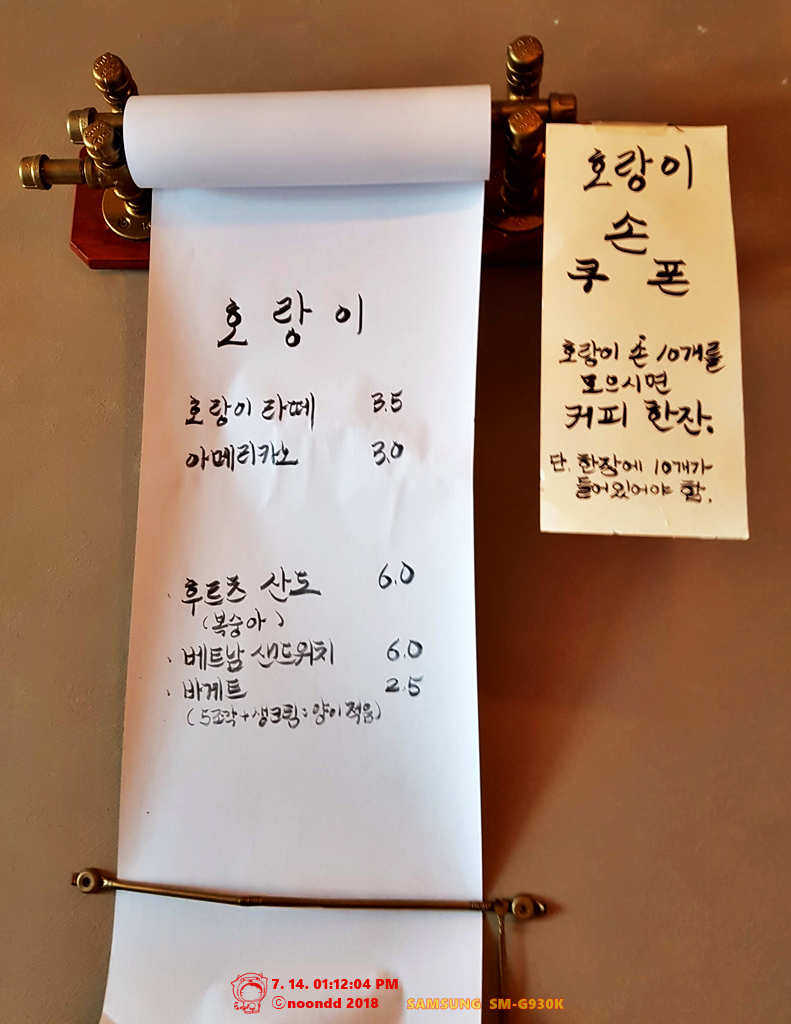 호랑이
호랑이 라떼 3.5
아메리카노 3.0
· 후르츠 산도 6.0
(복숭아)
· 베트남 샌드위치 6.0
· 바게트 2.5
(5조각+생크림:양이적음)
호랑이
손
쿠 폰
호랑이 손 10개를
모으시면
커피 한잔.
단. 한장에 10개가
들어있어야 함.
7. 14. 01:12:04 PM
©noondd 2018 SAMSUNG SM-G930K